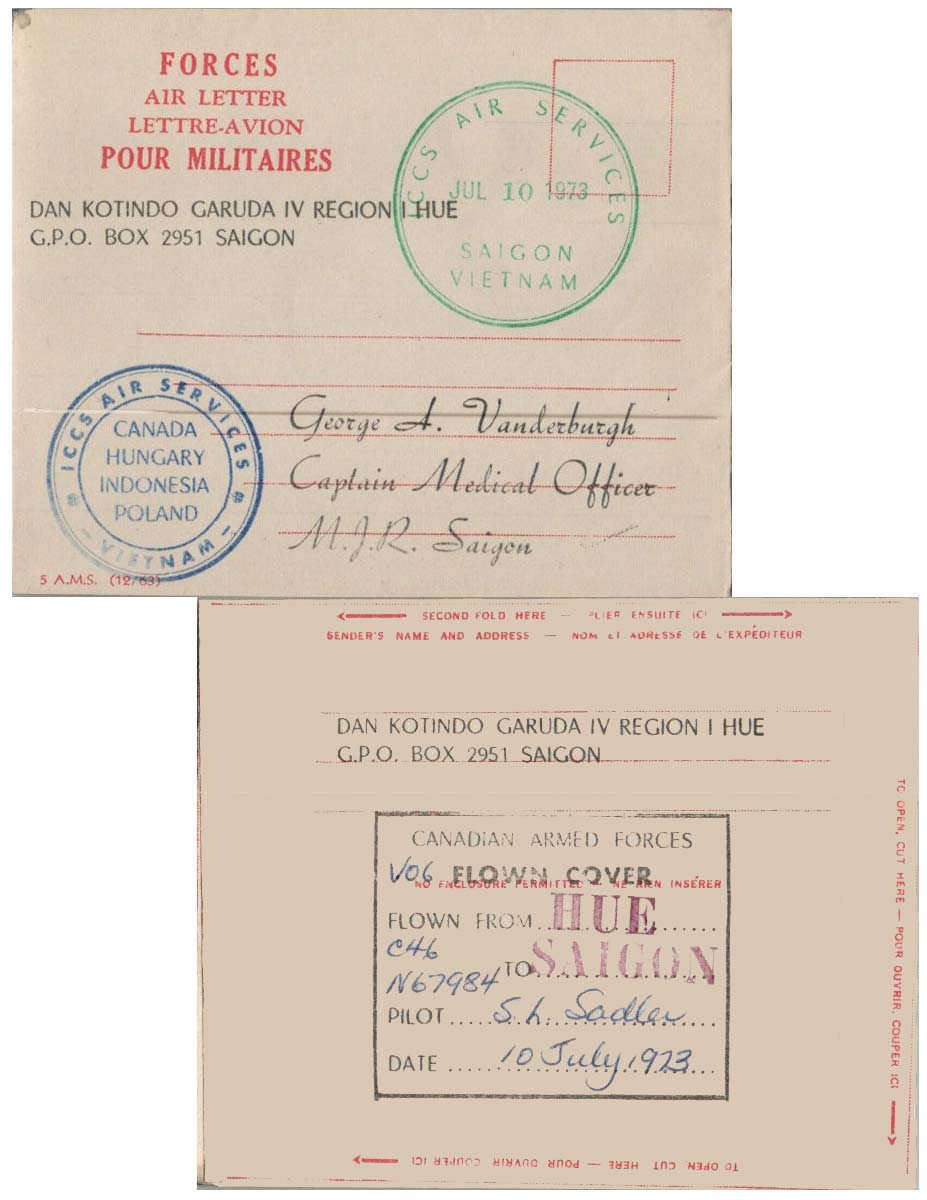 FORCES
AIR LETTER
LETTRE-AVION
POUR MILITAIRES
DAN KOTINDO GARUDA IV REGION I HUE
G.P.O. BOX 2951 SAIGON
ICCS AIR SERVICES
JUL 10 1973
SAIGON
VIETNAM
ICCS AIR SERVICES
CANADA
HUNGARY
INDONESIA
POLAND
VIETNAM
George A. Vanderburgh
Captain Medical Officer
M.J.R. Saigon
5 A.M.S. (12/63)
SECOND FOLD HERE — PLIER ENSUITE ICI
SENDER'S NAME AND ADDRESS — NOM et ADRESSE DE L'EXPÉDITEUR
DAN KOTINDO GARUDA IV REGION I HUE
G.P.O. BOX 2951 SAIGON
CANADIAN ARMED FORCES
V06 FLOWN COVER
NO ENCLOSURE PERMITTED — NE RIEN INSÉRER
FLOWN FROM HUE
C46
N67984 TO SAIGON
PILOT S. L. Sadler
DATE 10 July 1973
TO OPEN, CUT HERE — POUR OUVRIR, COUPER ICI
TO OPEN CUT HERE — POUR OUVRIR COUPER ICI